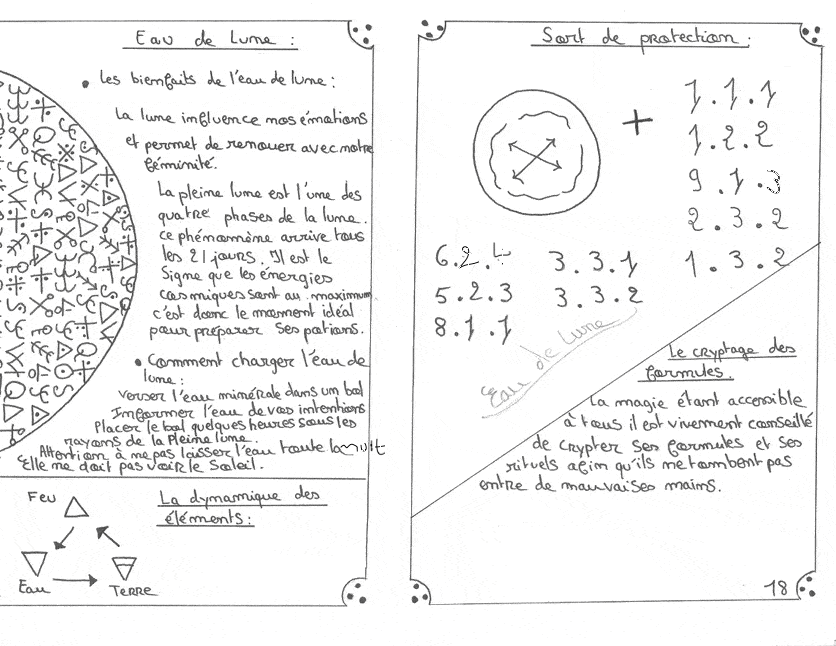 Eau de Lune :
• Les bienfaits de l'eau de lune :
La lune influence nos émotions
et permet de renouer avec notre
féminité.
La pleine lune est l'une des
quatre phases de la lune.
ce phénomène arrive tous
les 21 jours. Il est le
Signe que les énergies
cosmiques sont au maximum
c'est donc le moment idéal
pour préparer ses potions.
• Comment charger l'eau de
lune :
verser l'eau minérale dans un bol
Informer l'eau de vos intentions
Placer le bol quelques heures sous les
rayons de la Pleine lune.
Attention à ne pas laisser l'eau toute la nuit
Elle ne doit pas voir le Soleil.
La dynamique des
éléments :
Feu
Eau
Terre
Sort de protection :
+
1.1.1
1.2.2
9.1.3
2.3.2
1.3.2
6.2.4
5.2.3
8.1.1
3.3.1
3.3.2
Eau de Lune
Le cryptage des
formules.
La magie étant accessible
à tous il est vivement conseillé
de crypter ses formules et ses
rituels afin qu'ils ne tombent pas
entre de mauvaises mains.
18